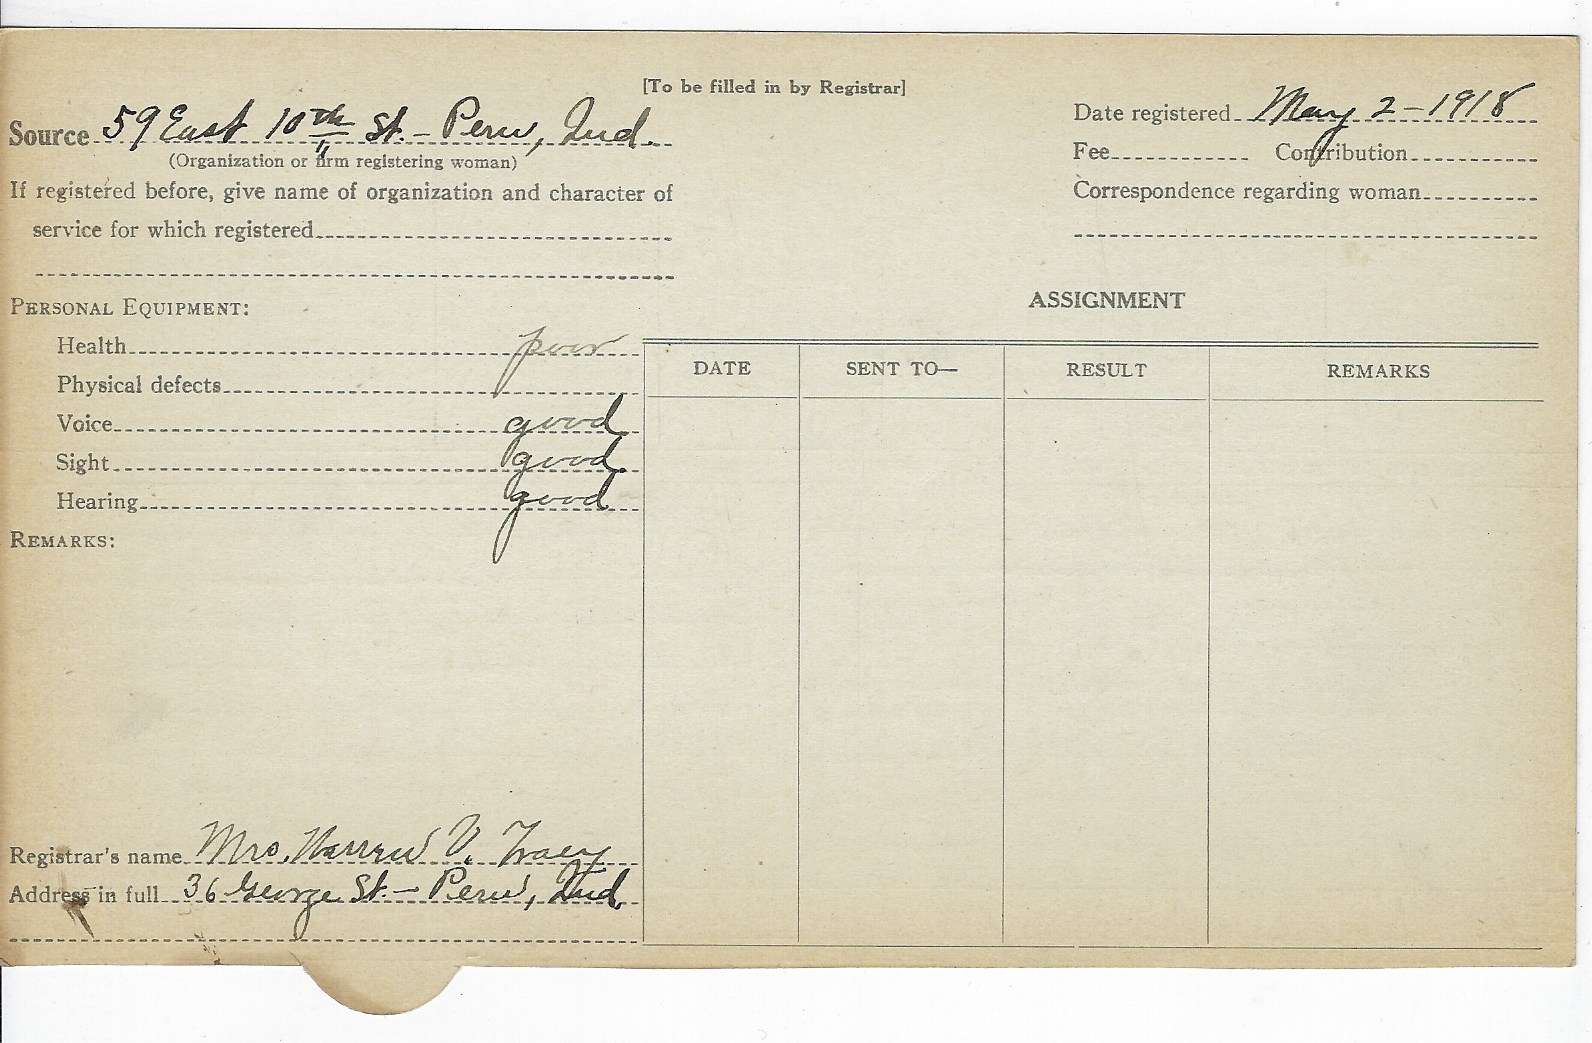 [To be filled in by Registrar]
Source 59 East 10th St. - Peru, Ind.
(Organization or firm registering woman)
If registered before, give name of organization and character of
service for which registered
Date registered May 2 - 1918
Fee Contribution
Correspondence regarding woman
PERSONAL EQUIPMENT:
Health poor
Physical defects
Voice good
Sight good
Hearing good
REMARKS:
ASSIGNMENT
DATE SENT TO— RESULT REMARKS
Registrar's name Mrs. Warren V. Tracy
Address in full 36 George St. - Peru, Ind.